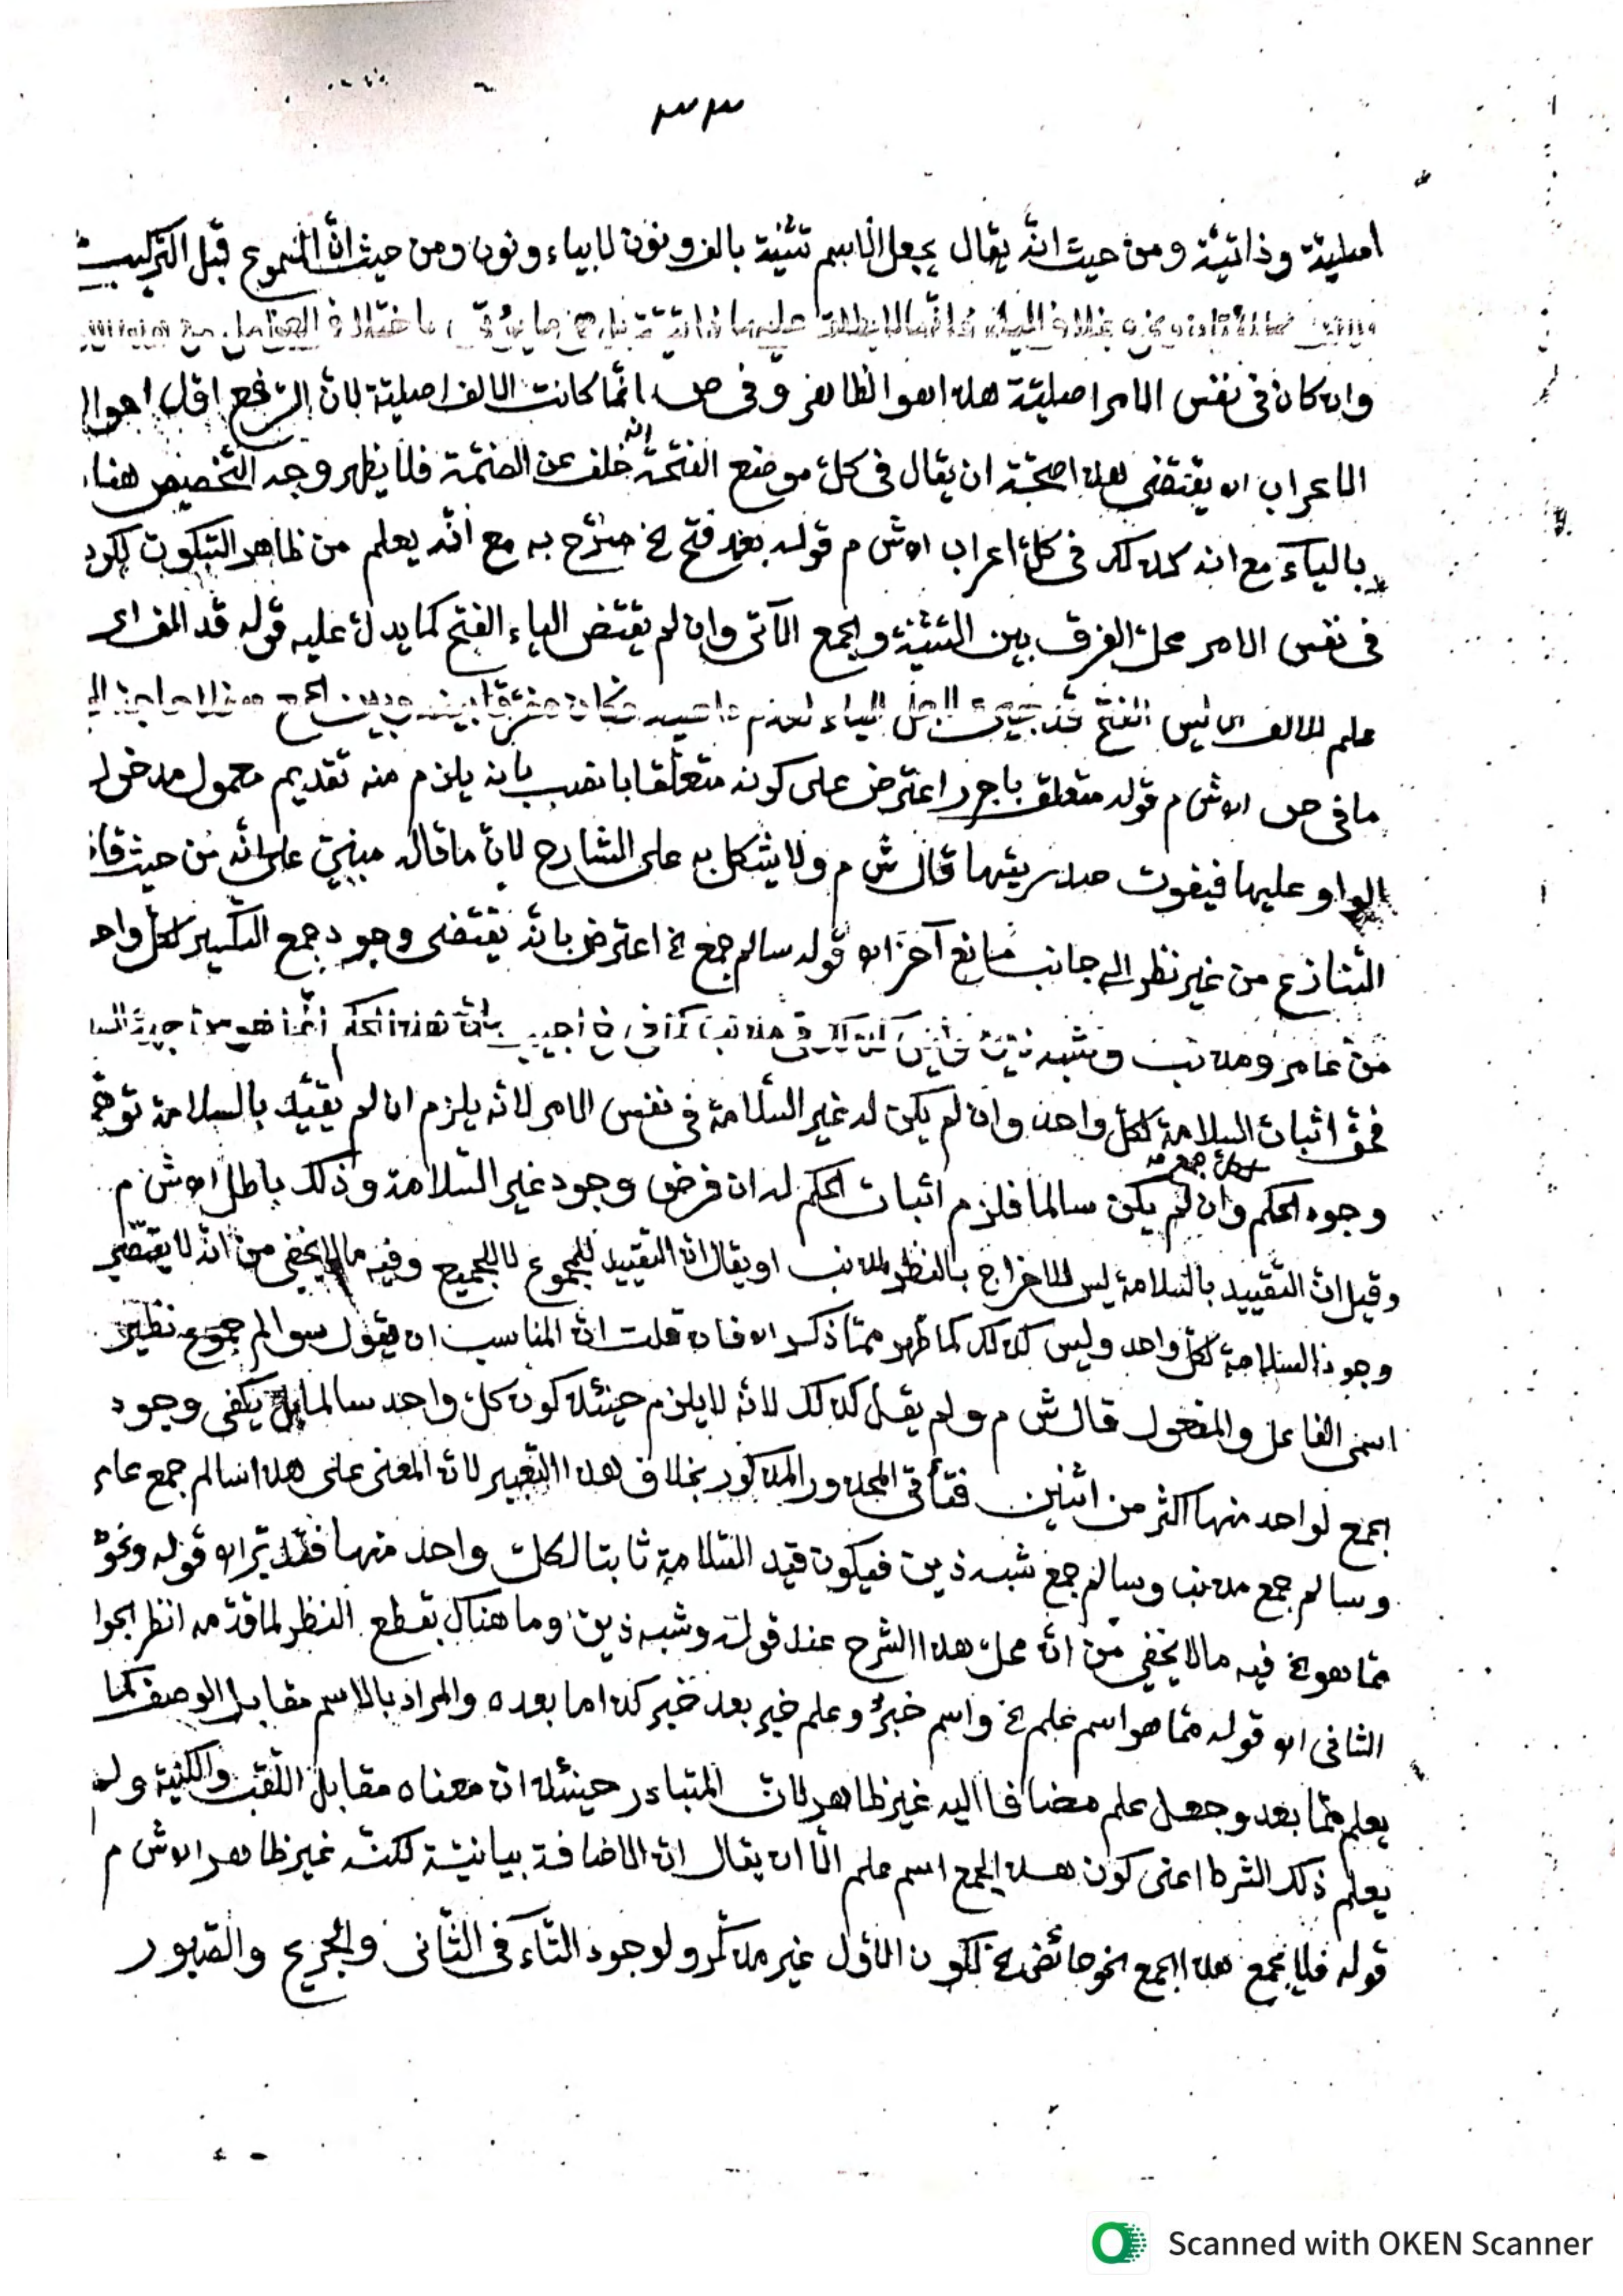 ٣٣
اصلية وذاتية ومن حيث انّه يقال يجعل الاسم تثنية بالف ونون لا بياء ونون ومن حيث انّ المجموع قبل التركيب
وان كان فى نفس الامر اصليّة هذا هو الظاهر وفى ص انّما كانت الالف اصليّة لانّ الرّفع اوّل احوال
الاعراب اه يقتضى هذا صحّة ان يقال فى كلّ موضع الفتحة انّه خلف عن الضّمّة فلا يظهر وجه التّخصيص هنا
بالياء مع انه كذلك فى كلّ اعراب اه ش م قوله بعد فتح الخ صرّح به مع انّه يعلم من ظاهر السّكوت لكونه
فى نفس الامر محلّ الفرق بين التّثنية والجمع الآتى وان لم يقتض الياء الفتح كما يدلّ عليه قوله قد الف اه
علم للالف اى ليس الفتح قد لاجل الياء
ما فى ص اه ش م قوله متعلق باجرر اعترض على كونه متعلّقا بانصب بانه يلزم منه تقديم معمول مدخول
الواو عليها فيفوت صدريتها قال ش م ولا يشكل به على الشارح لانّ ما قاله مبنيّ على انّه من حيث قا
التنازع من غير نظر الى جانب مانع آخر اه قوله سالم جمع الخ اعترض بانّه يقتضى وجود جمع التّكسير لكلّ واحد
من عامر ومذنب وشبه ذين اجيب بانّ هذا الحكم انّما هو من جهة
فحقّ اثبات السلامة لكلّ واحد وان لم يكن له غير السّلامة فى نفس الامر لانّه يلزم ان لم يقيّد بالسلامة توهّم
وجود الحكم وان لم يكن سالما فلزم اثبات الحكم له ان فرض وجود غير السّلامة وذلك باطل اه ش م
وقيل انّ التّقييد بالسلامة ليس للاخراج بالنظر لمذنب او يقال انّ التقييد للمجموع لا للجميع وفيه ما لا يخفى من انّه لا يقتضى
وجود السلامة لكلّ واحد وليس كذلك كما ظهر ممّا ذكر اه فان قلت انّ المناسب ان يقول سوالم جموع نظير
اسمى الفاعل والمفعول قال ش م ولم يقل كذلك لانّه لا يلزم حينئذ كون كلّ واحد سالما بل يكفى وجود
الجمع لواحد منها اكثر من اثنين فتأتى المحذور المذكور بخلاف هذا التّعبير لانّ المعنى على هذا سالم جمع عامر
وسالم جمع مذنب وسالم جمع شبه ذين فيكون قيد السّلامة ثابتا لكلّ واحد منها فتدبّر اه قوله ونحوه
ممّا هو الخ فيه ما لا يخفى من انّه محلّ هذا الشرح عند قوله وشبه ذين وما هناك بقطع النظر لما قدّمه انظر الجوا
الثانى اه قوله ممّا هو اسم علم الخ واسم خبر وعلم خبر بعد خبر كذا ما بعده والمراد بالاسم مقابل الوصف كما
يعلم ممّا بعد وجعل علم مضافا اليه غير ظاهر لانّ المتبادر حينئذ انّ معناه مقابل اللّقب والكنية ولم
يعلم ذلك الشرط اعنى كون هذا الجمع اسم علم الّا ان يقال انّ الاضافة بيانيّة لكنّه غير ظاهر اه ش م
قوله فلا يجمع هذا الجمع نحو حائض الخ لكون الاوّل غير مذكّر ولوجود التّاء فى الثّانى والجريح والصّبور
Scanned with OKEN Scanner